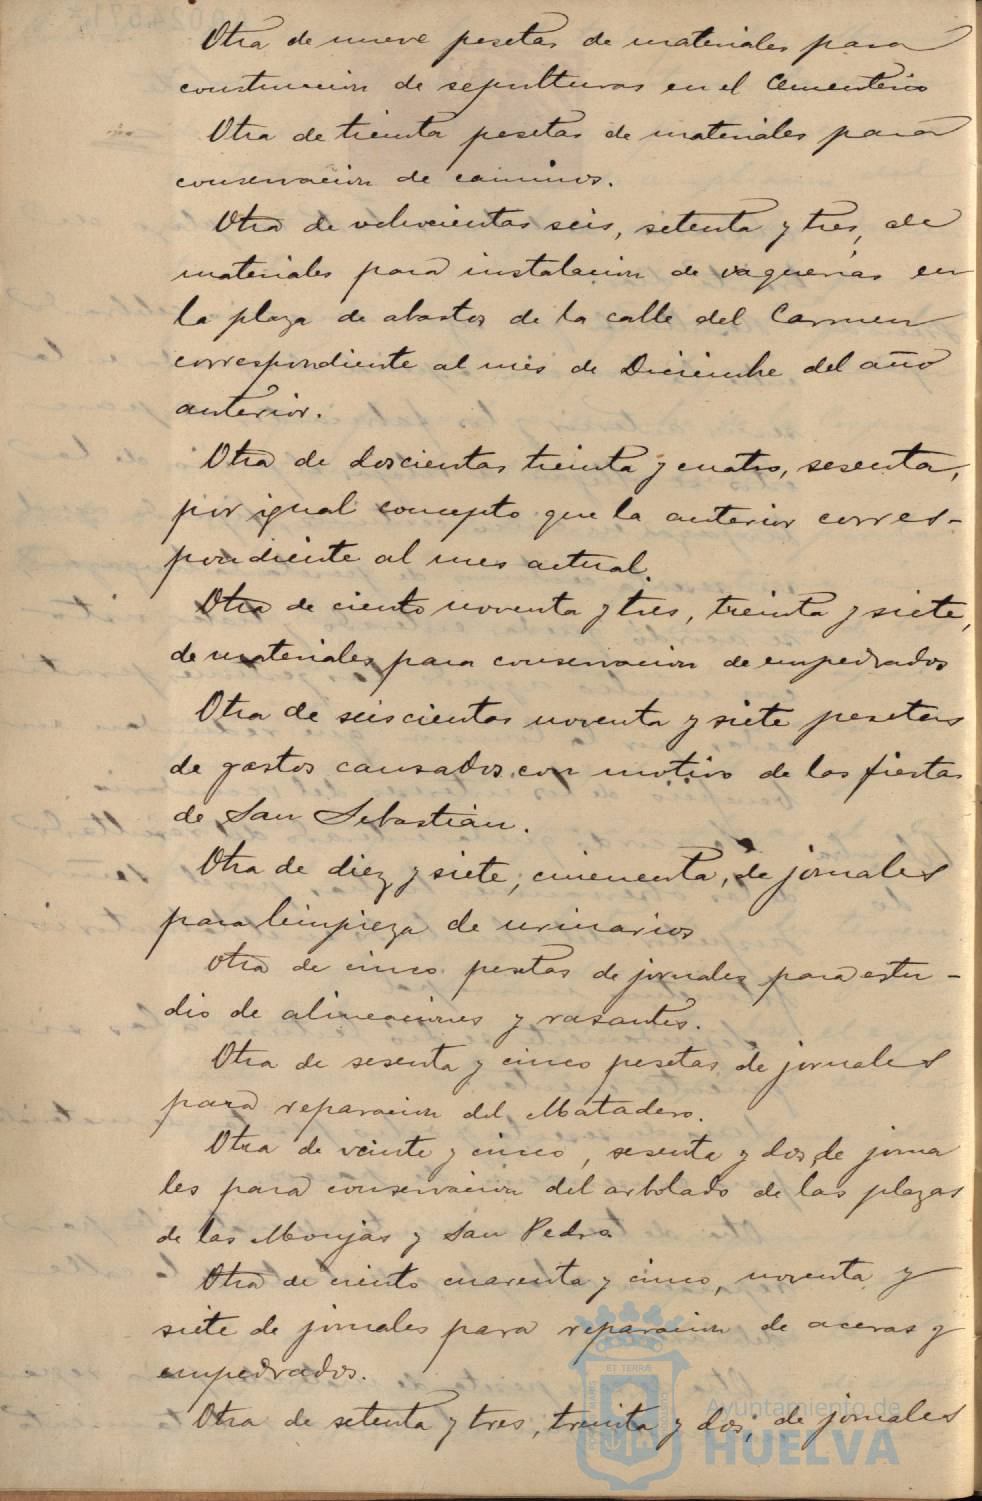 Otra de nueve pesetas de materiales para
construccion de sepulturas en el Cementerio
Otra de treinta pesetas de materiales para
conservacion de caminos.
Otra de ochocientas seis, setenta y tres, de
materiales para instalacion de vaquerias en
la plaza de abastos de la calle del Carmen
correspondiente al mes de Diciembre del año
anterior.
Otra de doscientas treinta y cuatro, sesenta,
por igual concepto que la anterior corres-
pondiente al mes actual.
Otra de ciento noventa y tres, treinta y siete,
de materiales para conservacion de empedrados
Otra de seiscientas noventa y siete pesetas
de gastos causados con motivo de las fiestas
de San Sebastián.
Otra de diez y siete, cincuenta, de jornales
para limpieza de urinarios
Otra de cinco pesetas de jornales para estu-
dio de alineaciones y rasantes.
Otra de sesenta y cinco pesetas de jornales
para reparacion del Matadero.
Otra de veinte y cinco, sesenta y dos, de jorna
les para conservacion del arbolado de las plazas
de las Monjas y San Pedro
Otra de ciento cuarenta y cinco, noventa y
siete de jornales para reparacion de aceras y
empedrados.
Otra de setenta y tres, treinta y dos, de jornales
Ayuntamiento de
HUELVA